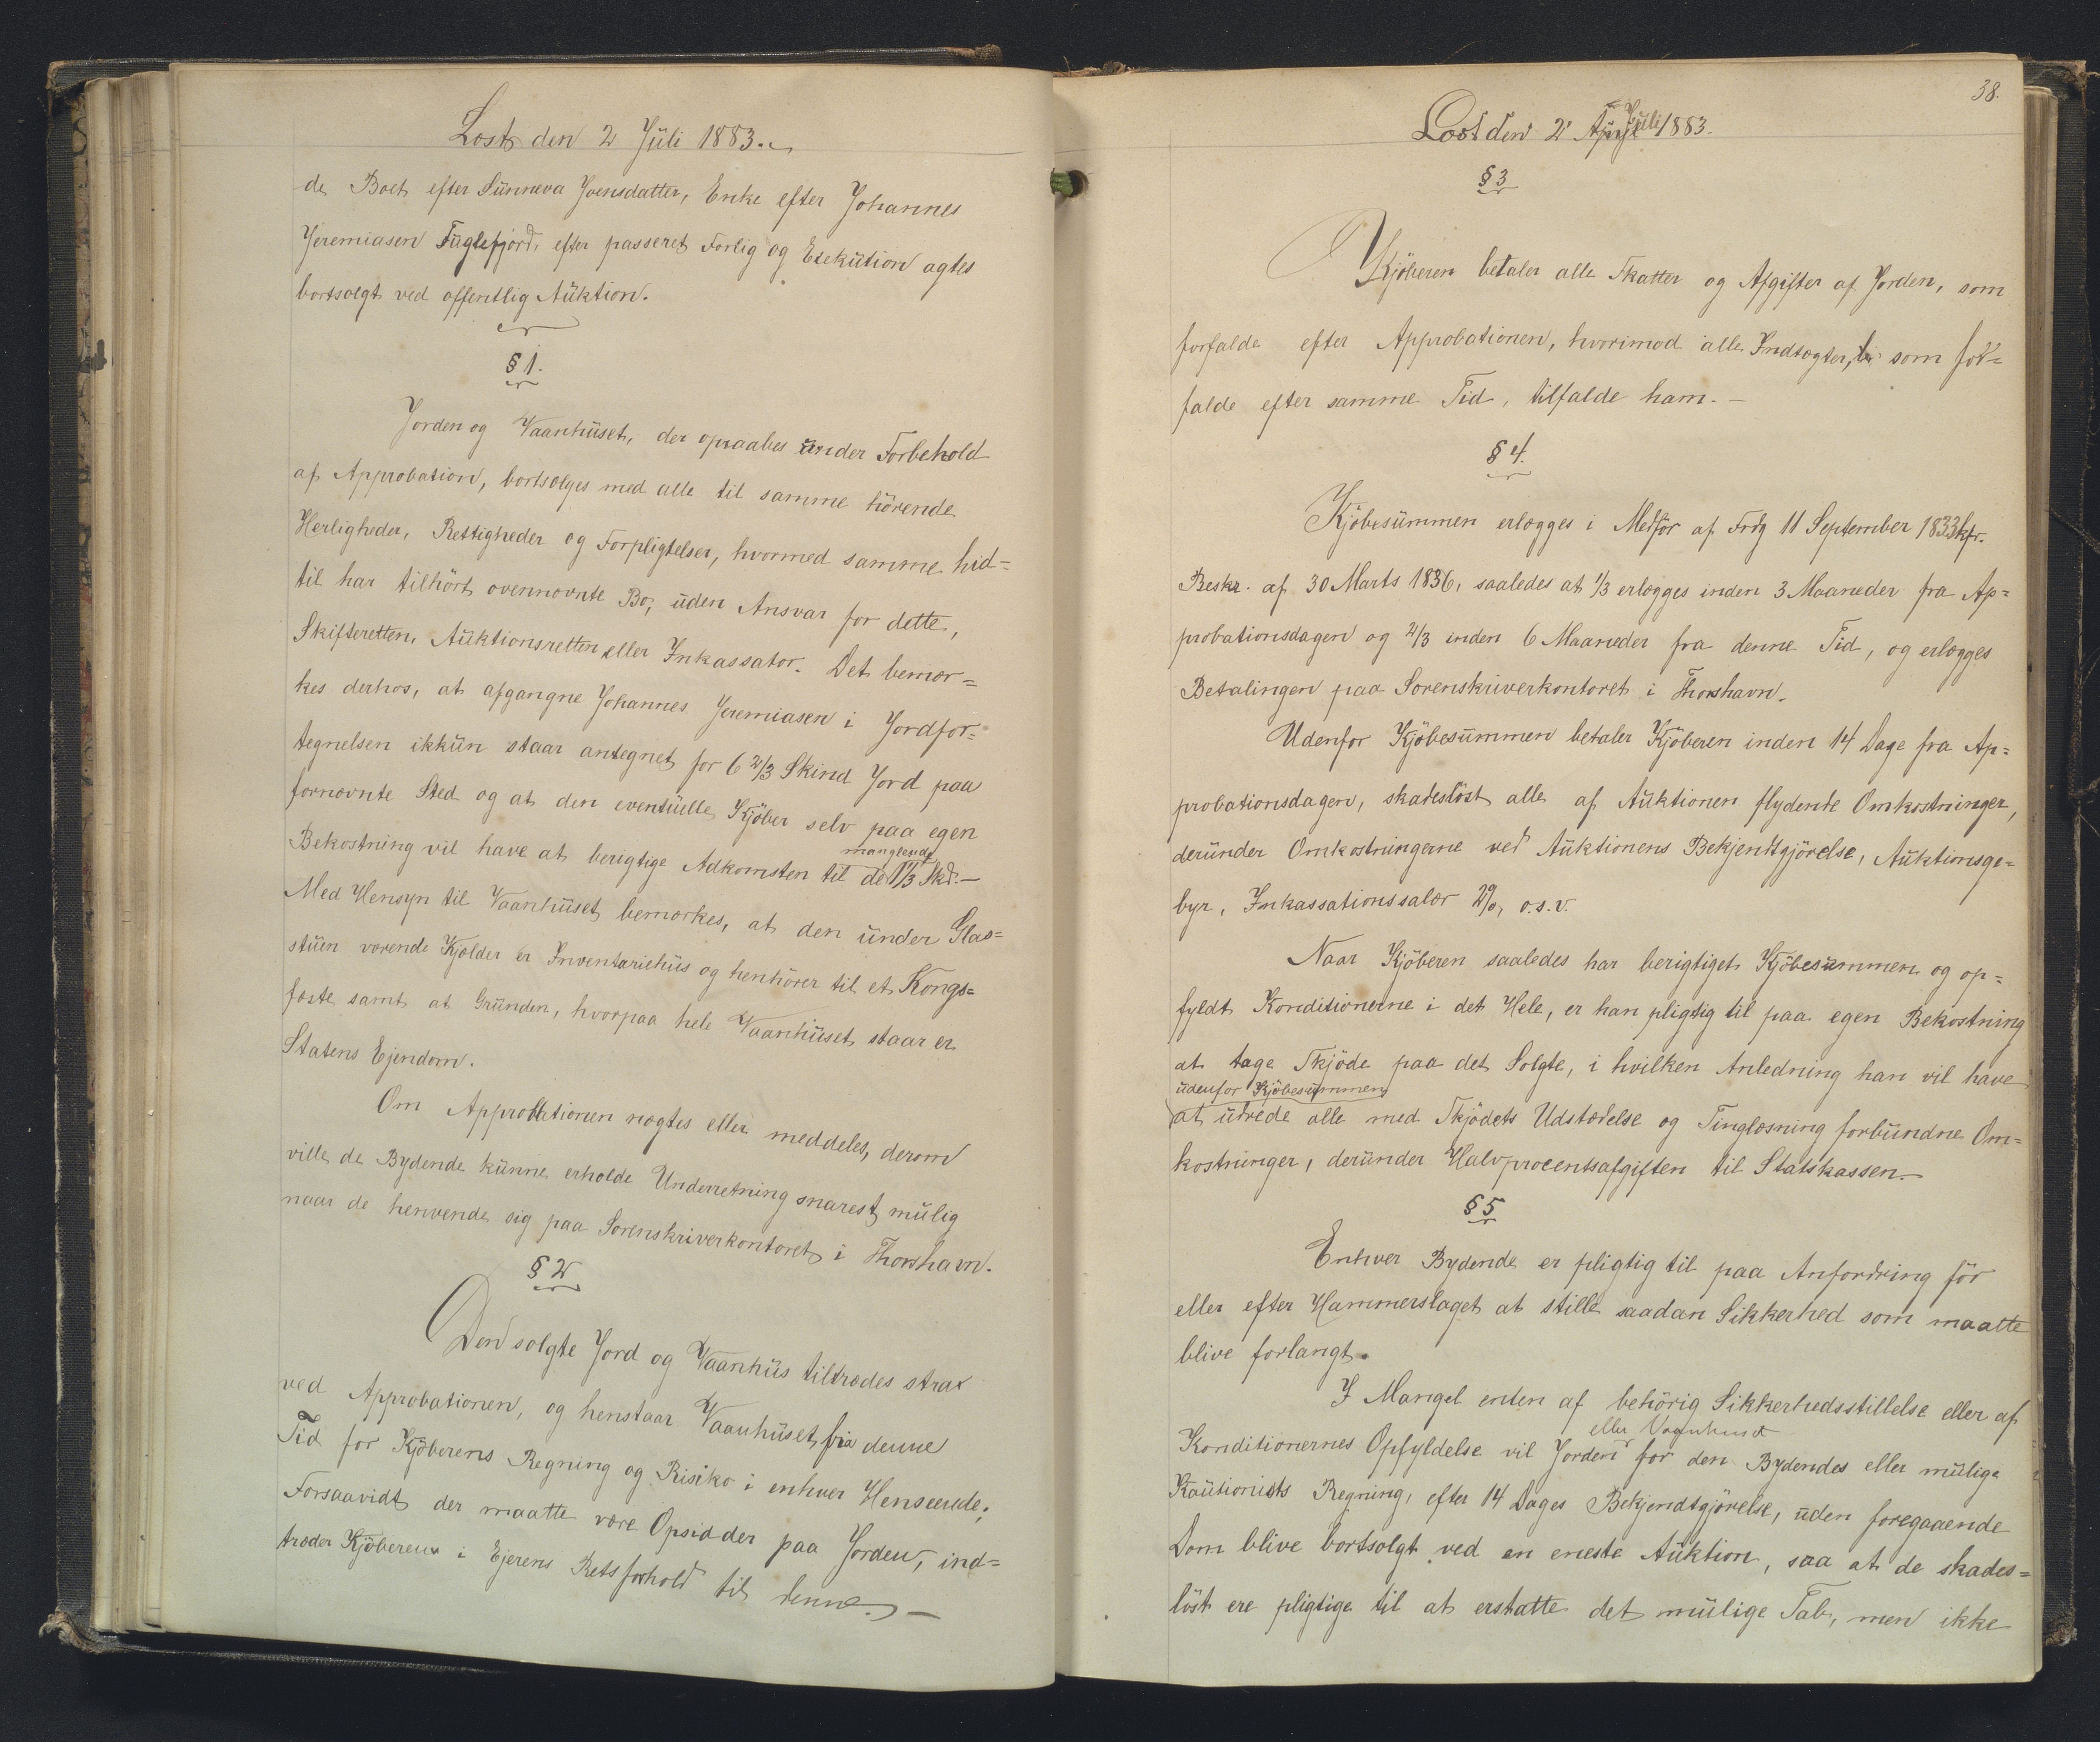 Læst den 2 Juli 1883.
de Boet efter Sunneva Joensdatter, Enke efter Johannes
Jeremiasen Fuglefjord, efter passeret Forlig og Exekution agtes
bortsolgt ved offentlig Auktion.
§ 1.
Jorden og Vaanhuset, der opraabes under Forbehold
af Approbation, bortsælges med alle til samme hörende
Herligheder, Rettigheder og Forpligtelser, hvormed samme hid=
til har tilhört ovennævnte Bo, uden Ansvar for dette,
Skifteretten, Auktionsretten eller Inkassator. Det bemær=
kes derhos, at afgangne Johannes Jeremiasen i Jordfor=
tegnelsen ikkun staar antegnet for 6 2/3 Skind Jord paa
fornævnte Sted og at den eventuelle Kjöber selv paa egen
manglende
Bekostning vil have at berigtige Adkomsten til de 1 1/3 Skd. —
Med Hensyn til Vaanhuset bemærkes, at den under Glas=
stuen værende Kjælder er Inventariehus og henhörer til et Kongs=
fæste samt at Grunden, hvorpaa hele Vaanhuset staar er
Statens Ejendom.
Om Approbationen nægtes eller meddeles, derom
ville de Bydende kunne erholde Underretning snarest mulig
naar de henvende sig paa Sorenskriverkontoret i Thorshavn.
§ 2
Den solgte Jord og Vaanhus tiltrædes strax
ved Approbationen, og henstaar Vaanhuset fra denne
Tid for Kjöberens Regning og Risiko i enhver Henseende;
Forsaavidt der maatte være Opsidder paa Jorden, ind=
træder Kjöberen i Ejerens Retsforhold til denne. —
38.
Læst den 2 Juli 1883.
§ 3
Kjöberen betaler alle Skatter og Afgifter af Jorden, som
forfalde efter Approbationen, hvorimod alle Indtægter, som for=
falde efter samme Tid, tilfalde ham. —
§ 4.
Kjöbesummen erlægges i Medför af Frdg 11 September 1833 kfr.
Beskr. af 30 Marts 1836, saaledes at 1/3 erlægges inden 3 Maaneder fra Ap=
probationsdagen og 2/3 inden 6 Maaneder fra denne Tid, og erlægges
Betalingen paa Sorenskriverkontoret i Thorshavn.
Udenfor Kjöbesummen betaler Kjöberen inden 14 Dage fra Ap=
probationsdagen, skadeslöst alle af Auktionen flydende Omkostninger,
derunder Omkostningerne ved Auktionens Bekjendtgjörelse, Auktionsge=
byr, Inkassationssalær 2%, o.s.v.
Naar Kjöberen saaledes har berigtiget Kjöbesummen og op=
fyldt Konditionerne i det Hele, er han pligtig til paa egen Bekostning
at tage Skjöde paa det Solgte, i hvilken Anledning han vil have
udenfor Kjöbesummen
at udrede alle med Skjödets Udstædelse og Tinglæsning forbundne Om=
kostninger, derunder Halvprocentsafgiften til Statskassen. —
§ 5
Enhver Bydende er pligtig til paa Anfordring för
eller efter Hammerslaget at stille saadan Sikkerhed som maatte
blive forlangt.
I Mangel enten af behörig Sikkerhedsstillelse eller af
eller
Konditionernes Opfyldelse vil Jorden for den Bydendes eller mulige
Kautionists Regning, efter 14 Dages Bekjendtgjörelse, uden foregaaende
Dom blive bortsolgt ved en eneste Auktion, saa at de skades=
löst ere pligtige til at erstatte det mulige Tab, men ikke